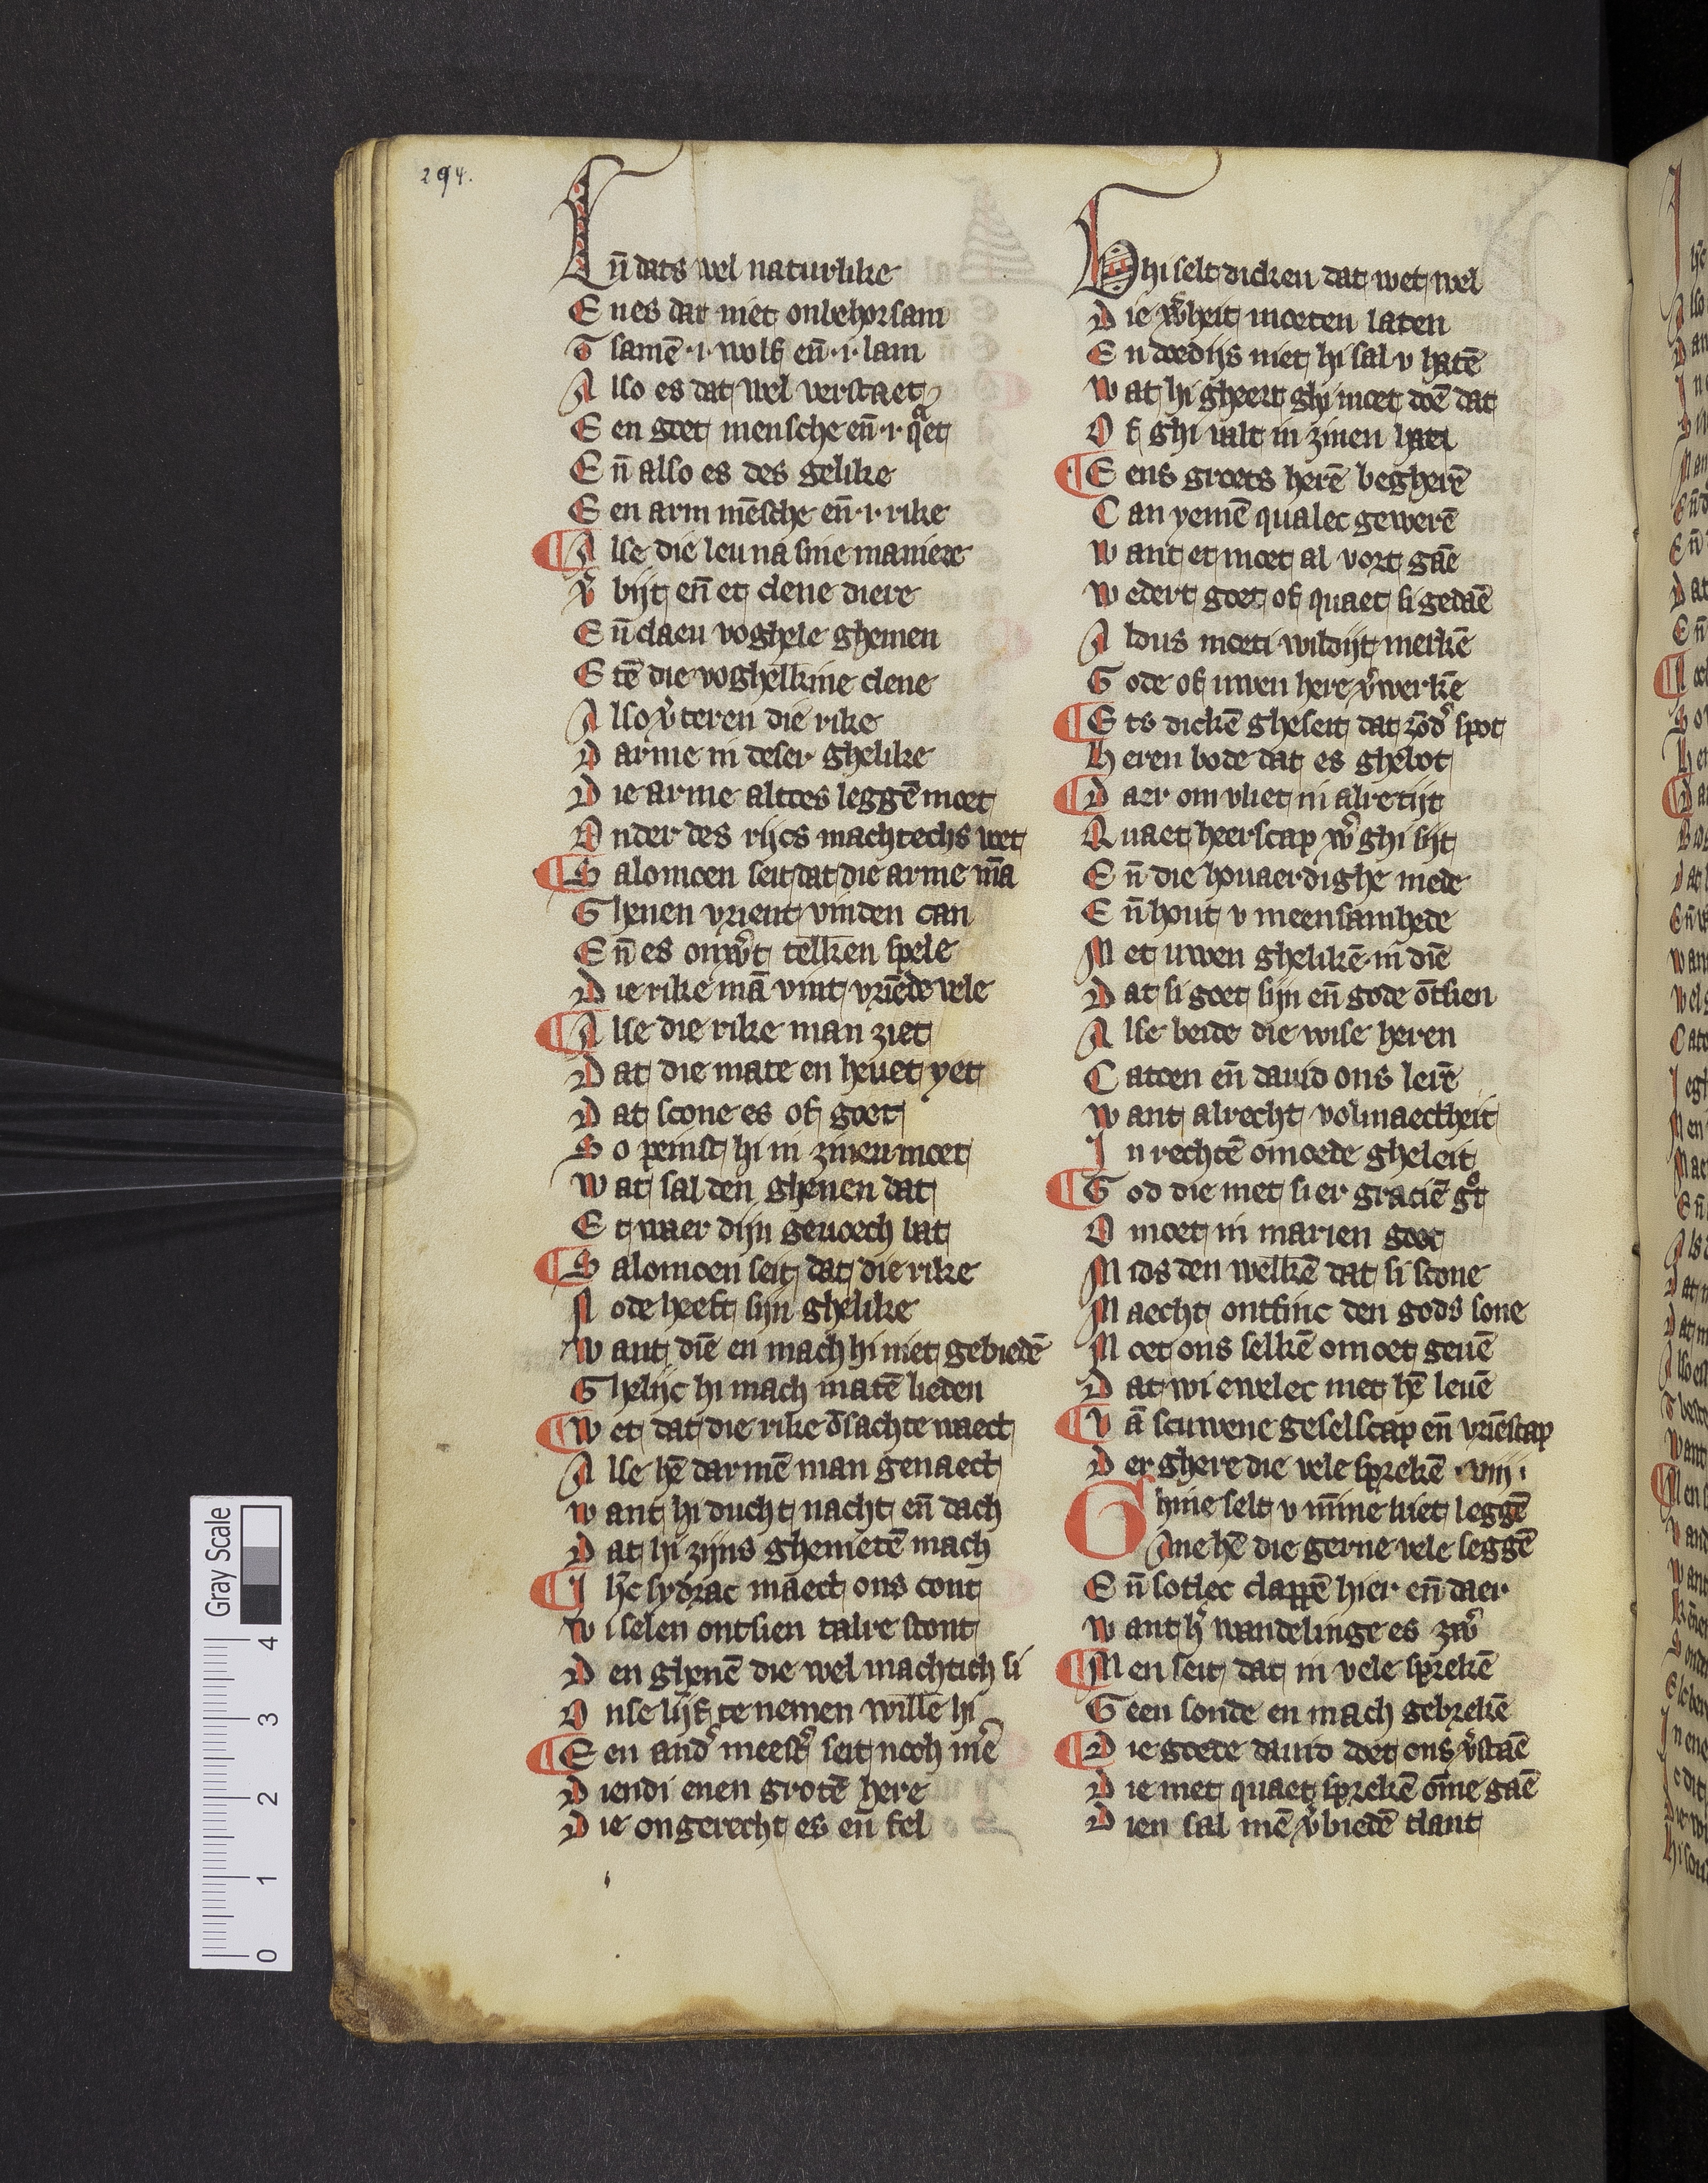 294.
En̄ dats wel naturlike
En es dat niet onbehorsam
Tsamē .i. wolf en̄ .i. lam
Also es dat wel verstaet
Een goet mensche en̄ .i. qͣet
En̄ also es des gelike
Een arm mēsche en̄ .i. rike
¶ Alse die leu na sine maniere
V̓bijt en̄ et clene diere
En̄ claeu voghele ghemen
Etē die voghelkine clene
Also v̓teren die rike
Darme in deser ghelike
Die arme altoes leggē moet
Onder des rijcs machtechs voet
¶ Salomoen seit dat die arme mā
Ghenen vrient vinden can
En̄ es onw̓t telken spele
Die rike mā vint vriēde vele
¶ Alse die rike man ziet
Dat die mate en heuet yet
Dat scone es of goet
So peinst hi in zinen moet
Wat sal den ghenen dat
Et waer dijn geuoech bat
¶ Salomoen seit dat die rike
Node heeft sijn ghelike
Want diē en mach hi niet gebiedē
Ghelijc hi mach matē lieden
¶ Wet dat die rike ōsachte waect
Alse hē darmē man genaect
Want hi ducht nacht en̄ dach
Dat hi zijns ghenietē mach
¶ Ihc sydrac māect ons cont
Wi selen ontsien talre stont
Den ghenē die wel machtich si
Onse lijf te nemen willē hi
¶ Een and̓ meest̓ seit noch mē
Diendi enen grotē here
Die ongerecht es en̄ fel
Ghi selt dicken dat wet wel
Die w̓heit moeten laten
En doedijs niet hi sal v hatē
Wat hi gheert ghi moet doē dat
Of ghi valt in zinen hat
¶ Eens groets herē begherē
Can yemē qualec gewerē
Want et moet al vort gāe
Wedert goet of quaet si gedāe
Aldus moeti wildijt merkē
Gode of uwen here v̓werkē
¶ Ets dickē gheseit dat zōd̓ spot
Heren bode dat es ghebot
¶ Daer om vliet in alre tijt
Quaet heerscap w̓ ghi sijt
En̄ die houaerdighe mede
En̄ hout v meensamhede
Met uwen ghelikē in diē
Dat si goet sijn en̄ gode ōtsien
Alse beide die wise heren
Catoen en̄ dauid ons lerē
Want alrecht volmaectheit
In rechtē omoede gheleit
¶ God die met sier gratiē gͦt
Omoet in marien goet
Mids den welkē dat si scone
Maecht ontfinc den gods sone
Moet ons selkē omoet geuē
Dat wi ewelec met hē leuē
¶ Vā scuwene geselscap en̄ vriēscap
Der ghere die vele sprekē .viij.
Ghine selt v m̄ine niet leggē
Ane hē die gerne vele seggē
En̄ sotlec clappē hier en̄ daer
Want h̓ wandelinge es zw̓
¶ Men seit dat in vele sprekē
Geen sonde en mach gebrekē
¶ Die goede dauid doet ons v̓stāe
Die met quaet sprekē ōme gaē
Dien sal mē v̓biedē tlant
Gray Scale
4
3
2
1
0